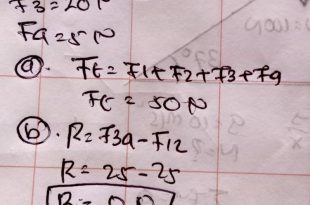 F3=20N
Fg=5N
(a). Ft=F1+F2+F3+Fg
Ft= 50N
(b). R=F3g-F12
R= 25-25
R= 0N